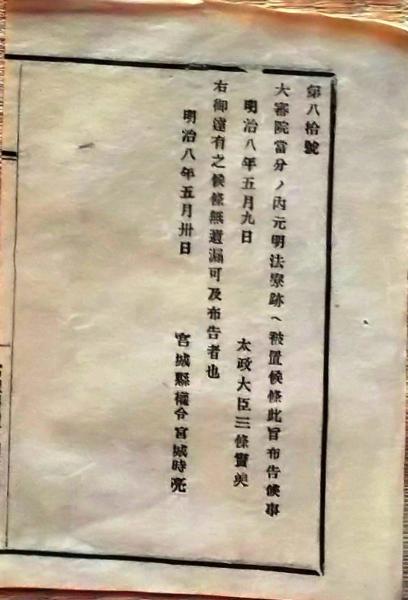 第八拾號
大審院當分ノ内元明法寮跡ヘ被置候條此旨布告候事
明治八年五月九日
太政大臣三條實美
右御達有之候條無遺漏可及布告者也
明治八年五月卅日
宮城縣權令宮城時亮